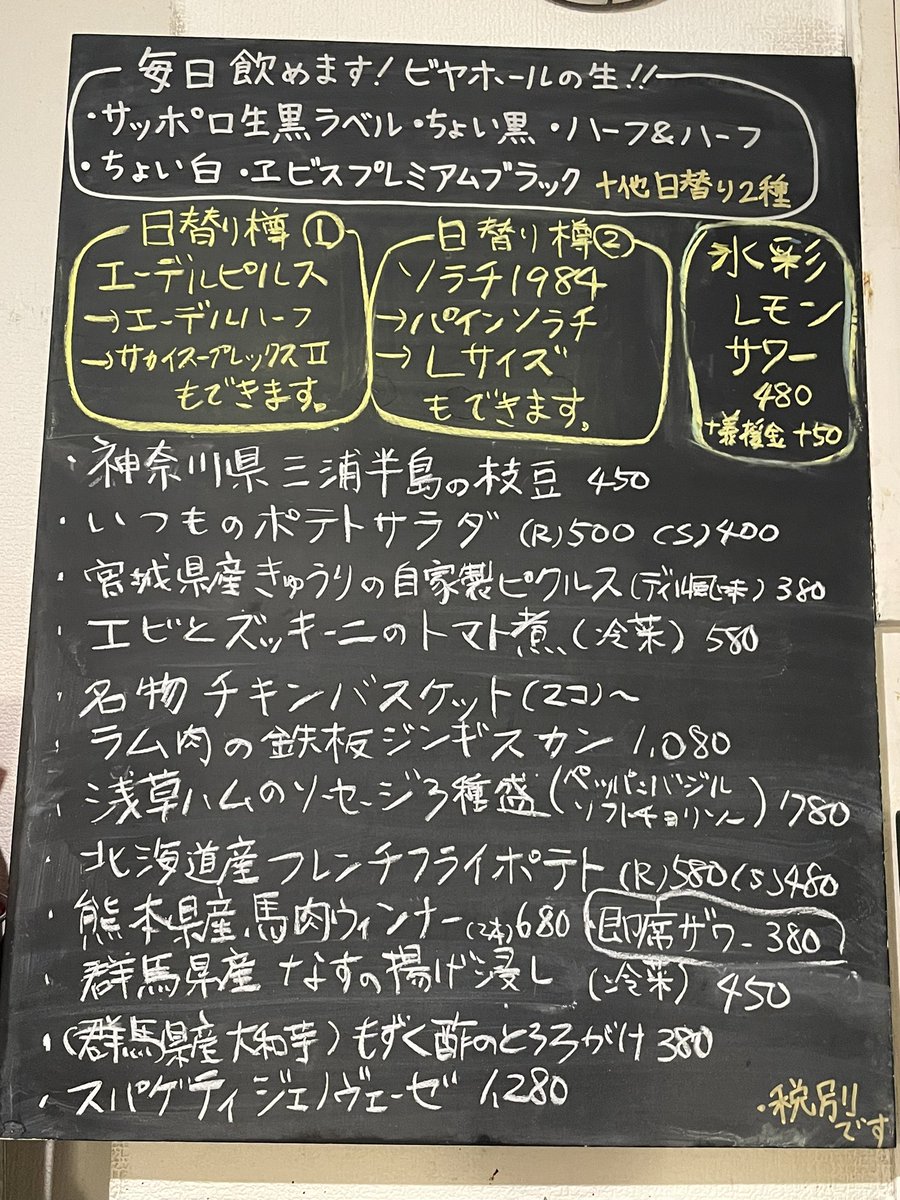 毎日飲めます!ビヤホールの生!!
・サッポロ生黒ラベル・ちょい黒・ハーフ&ハーフ
・ちょい白・ヱビスプレミアムブラック +他日替り2種
日替り樽①
エーデルピルス
→エーデルハーフ
→サカイスープレックスⅡ
もできます。
日替り樽②
ソラチ1984
→パインソラチ
→Lサイズ
もできます。
氷彩
レモン
サワー
480
+義援金+50
・神奈川県三浦半島の枝豆 450
・いつものポテトサラダ (R)500 (S)400
・宮城県産きゅうりの自家製ピクルス(ディル風味)380
・エビとズッキーニのトマト煮(冷菜) 580
・名物チキンバスケット(2コ)~
・ラム肉の鉄板ジンギスカン 1,080
・浅草ハムのソーセージ3種盛(ペッパー・バジル
ソフトチョリソー)1780
・北海道産フレンチフライポテト(R)580(S)480
・熊本県産馬肉ウィンナー(2本)680
即席ザワー 380
・群馬県産なすの揚げ浸し (冷菜) 450
・(群馬県産大和芋)もずく酢のとろろがけ 380
・スパゲティジェノヴェーゼ 1,280
・税別
です